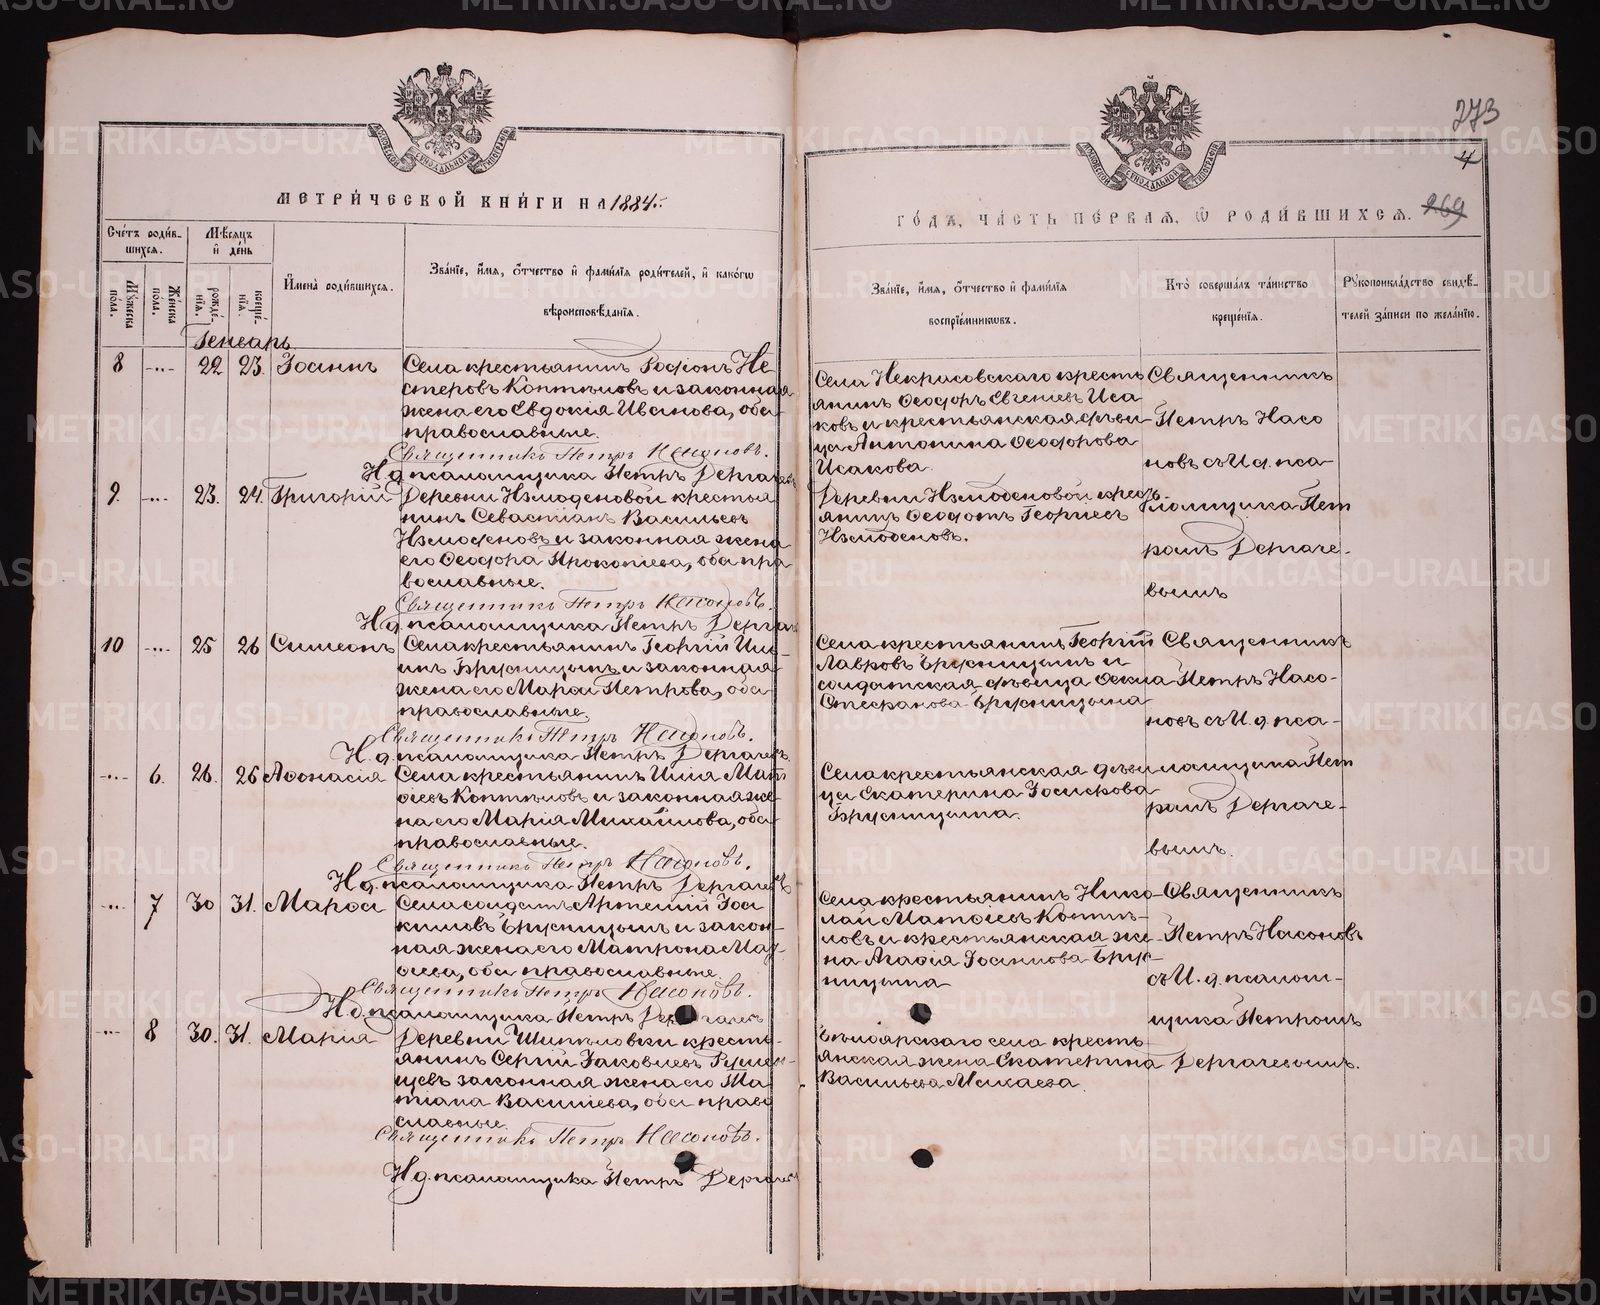 273
4
269
МЕТРИ́ЧЕСКОЙ КНИ́ГИ НА 1884.
ГО́ДЪ, ЧА́СТЬ ПЕ́РВАѦ, Ѡ҆ РОДИ́ВШИХСѦ.
Сче́тъ роди́в-
шихсѧ.
Мѣ́сѧцъ
и҆ де́нь
Мꙋ́жеска
пола.
Же́нска
пола.
рожде́-
нїѧ.
креще́-
нїѧ.
И҆мена̀ роди́вшихсѧ.
Зва́нїе, и҆́мѧ, ѻ҆́тчество и҆ фами́лїѧ роди́телей, и҆ како́гѡ
вѣроисповѣ́данїѧ.
Зва́нїе, и҆́мѧ, ѻ҆́тчество и҆ фами́лїѧ
воспрїе́мникѡвъ.
Кто̀ соверша́лъ та́инство
креще́нїѧ.
Рꙋкоприкла́дство свидѣ́-
телей за́писи по жела́нїю.
Генварь
8 -..- 22 23. Іоаннъ
Села крестьянинъ Родіонъ Не
стеровъ Коптѣловъ и законная
жена его Евдокія Иванова, оба
православные.
Священникъ Петръ Насоновъ.
И. д. псаломщика Петръ Дергачевъ
Села Некрасовскаго кресть
янинъ Ѳеодоръ Евгеніевъ Иса
ковъ и крестьянская дѣви
ца Антонина Ѳеодорова
Исакова.
Священникъ
Петръ Насо
новъ съ И. д. пса
ломщика Пет
ромъ Дергаче-
вымъ
9. -..- 23. 24. Григорій
Деревни Измоденовой крестья
нинъ Севастіанъ Васильевъ
Измоденовъ и законная жена
его Ѳеодора Прокопіева, оба пра
вославные.
Священникъ Петръ Насоновъ.
И. д. псаломщика Петръ Дергач
Деревни Измоденовой кресть-
янинъ Ѳеодотъ Георгіевъ
Измоденовъ.
10 -..- 25 26 Симеонъ
Села крестьянинъ Георгій
Брусницынъ и законная
жена его Марѳа Петрова, оба
православные.
Священникъ Петръ Насоновъ.
И. д. псаломщика Петръ Дергачевъ.
Села крестьянинъ Георгій
Лавровъ Брусницынъ и
солдатская дѣвица Ѳекла
Стефанова Брусницына
Священникъ
Петръ Насо-
новъ съ И. д. пса-
ломщика Пет
ромъ Дергаче-
вымъ.
-..- 6. 26. 26 Аѳонасія
Села крестьянинъ Илія Мат
ѳіевъ Коптѣловъ и законная же-
на его Марія Михайлова, оба
православные.
Священникъ Петръ Насоновъ.
И. д. псаломщика Петръ Дергачевъ
Села крестьянская дѣви
ца Екатерина Іосифова
Брусницына.
-..- 7 30 31. Марѳа
Села солдатъ Артемій Іоа
кимовъ Брусницынъ и закон-
ная жена его Матрона Мат-
ѳіева, оба православные.
Священникъ Петръ Насоновъ.
И. д. псаломщика Петръ Дергачевъ
Села крестьянинъ Нико-
лай Матѳіевъ Коптѣ-
ловъ и крестьянская же-
на Агаѳія Іоаннова Брус-
ницына
Священникъ
Петръ Насоновъ
съ И. д. псалом-
щика Петромъ
Дергачевымъ.
-..- 8 30. 31. Марія
Деревни Шипѣловки кресть-
янинъ Сергій Іаковлевъ
законная жена его Та
тіана Василіева, оба право
славные.
Священникъ Петръ Насоновъ.
И. д. псаломщика Петръ Дергачевъ
Бѣлоярскаго села кресть
янская жена Екатерина
Васильева
METRIKI.GASO-URAL.RU